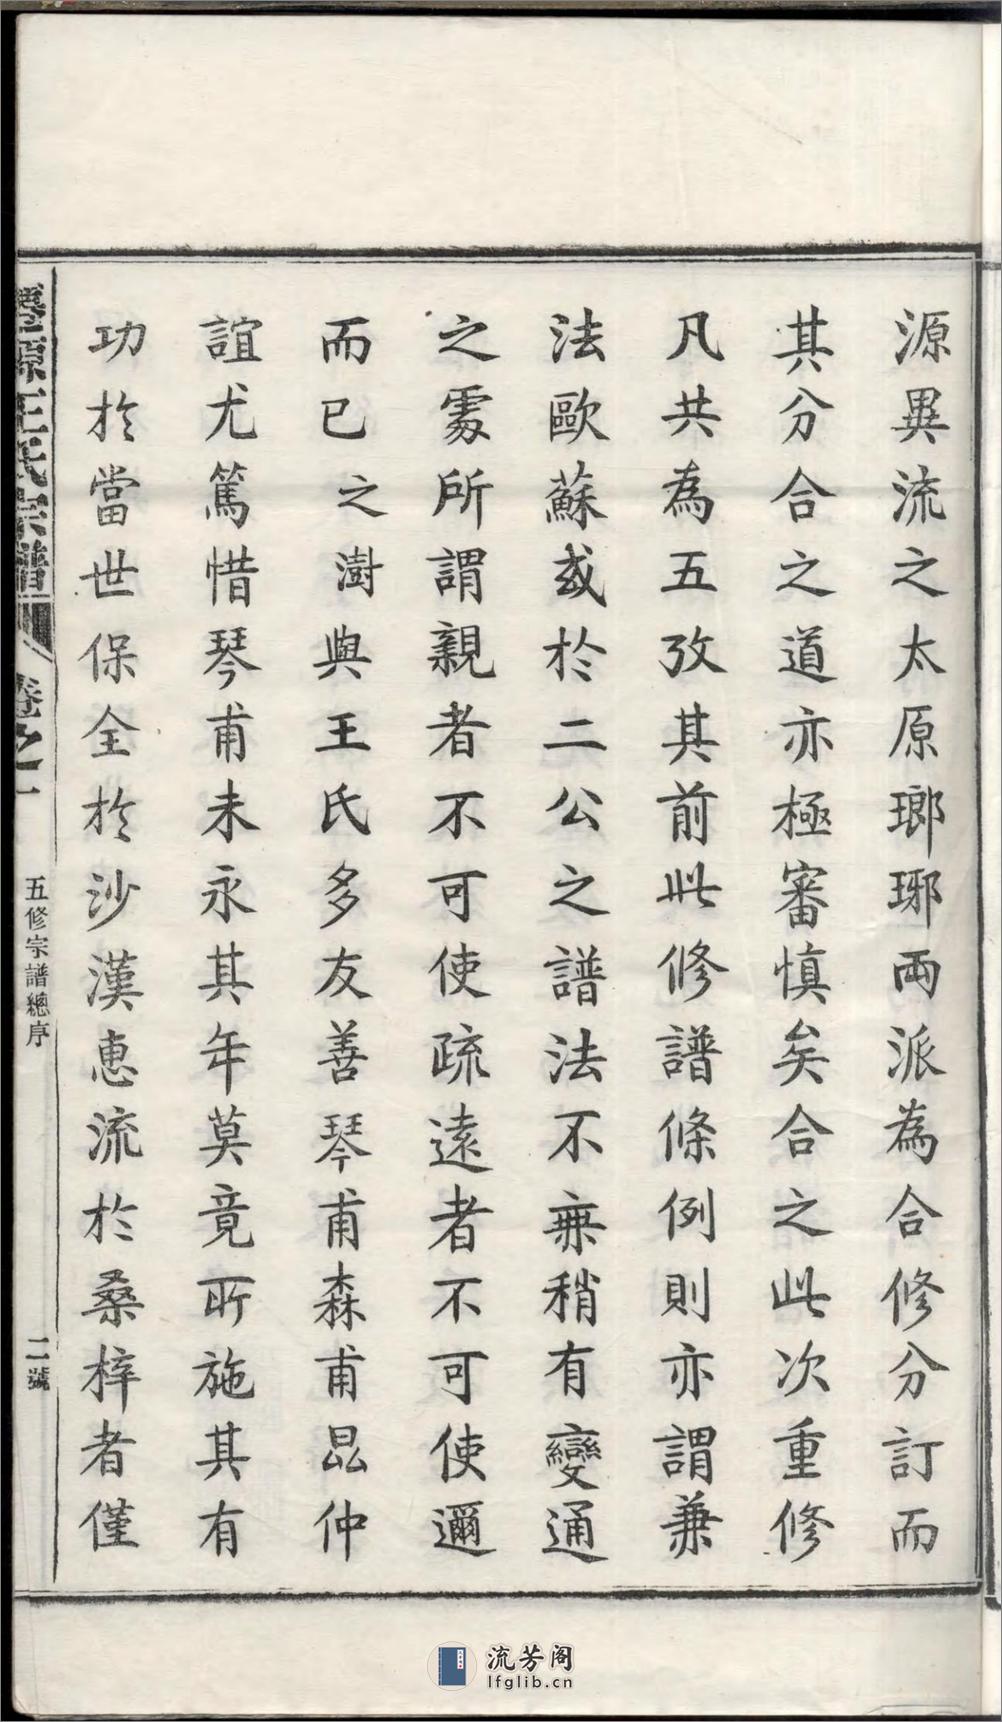 源異流之太原瑯琊兩派為合修分訂而
其分合之道亦極審慎矣合之此次重修
凡共為五攷其前此修譜條例則亦謂兼
法歐蘇或於二公之譜法不無稍有變通
之處所謂親者不可使疏遠者不可使邇
而已之澍與王氏多友善琴甫森甫昆仲
誼尤篤惜琴甫未永其年莫竟所施其有
功於當世保全於沙漢惠流於桑梓者僅
源王氏宗譜
卷之一
五修宗譜總序
二號
流芳阁
lfglib.cn